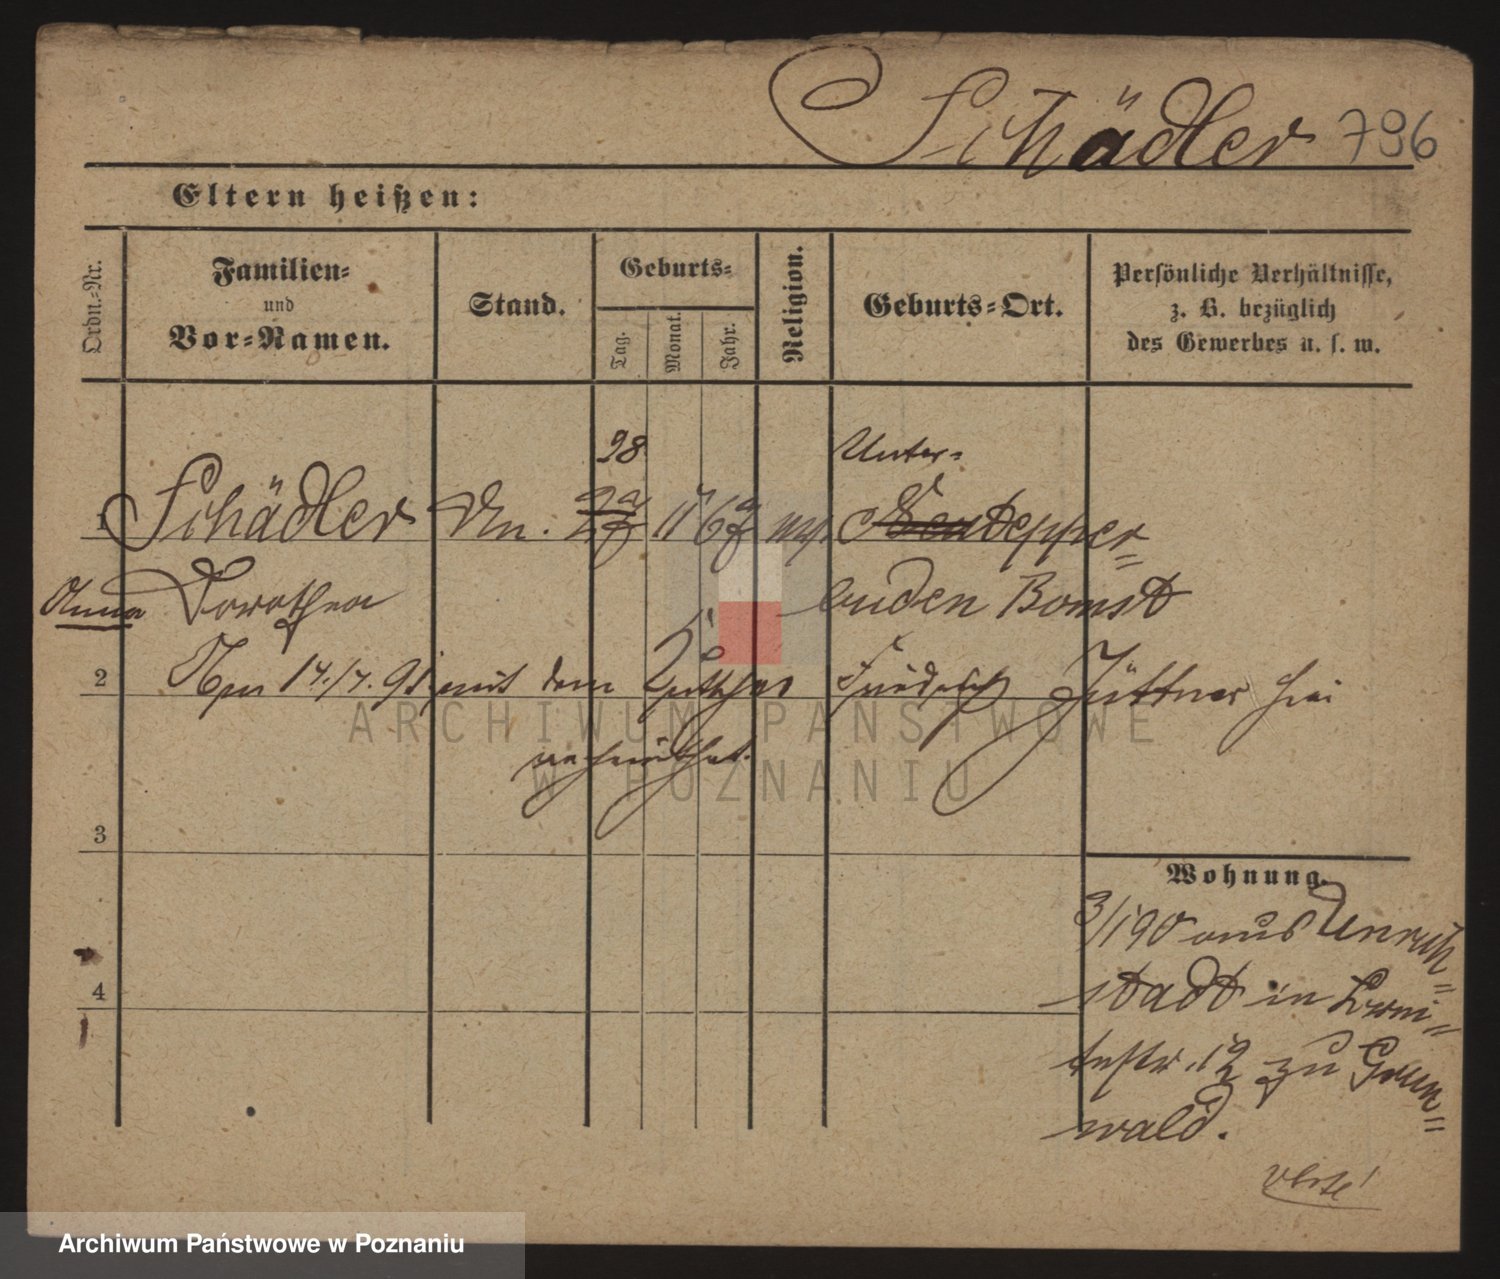 Schädler 796
Eltern heißen:
Ordn.-Nr.
Familien-
und
Vor-Namen.
Stand.
Geburts-
Tag.
Monat.
Jahr.
Religion.
Geburts-Ort.
Persönliche Verhältnisse,
z. B. bezüglich
des Gewerbes u. s. w.
28 Unter-
1 Schädler 11 67 depper-
Anna Dorothea buden Bomst
2 14./7. 91 mit dem Friedrich Jüttner hier
verheirathet.
3
Wohnung.
3/1 90 aus Unruh-
4 stadt in
12 zu Grun-
wald.
ARCHIWUM PAŃSTWOWE
W POZNANIU
Archiwum Państwowe w Poznaniu